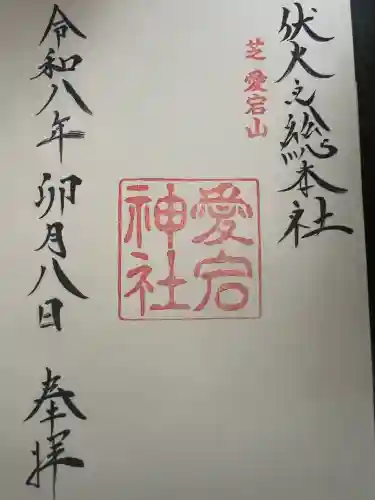 伏火之総本社
芝愛宕山
愛宕
神社
令和八年卯月八日
奉拝